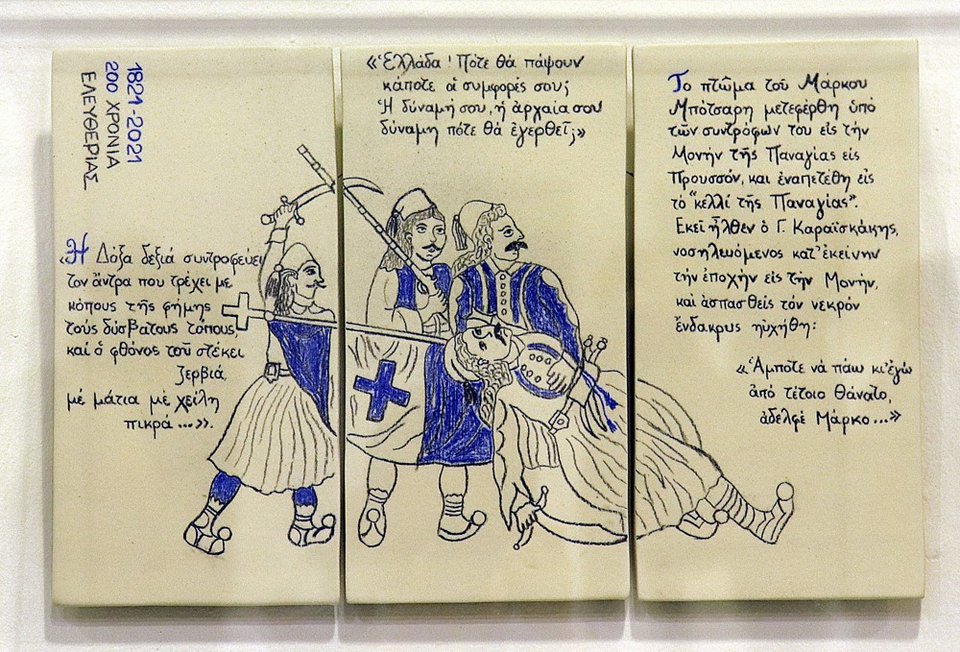 1821-2021
200 ΧΡΟΝΙΑ
ΕΛΕΥΘΕΡΙΑΣ
«Ἡ Δόξα δεξιά συντροφεύει
τον ἄντρα που τρέχει με
κόπους τῆς φήμης
τούς δύσβατους τόπους,
καί ὁ φθόνος τοῦ στέκει
ζερβιά,
μέ μάτια μέ χείλη
πικρά...».
«Ἑλλάδα! Πότε θά πάψουν
κάποτε οἱ συμφορές σου;
Ἡ δύναμή σου, ἡ ἀρχαία σου
δύναμη πότε θά ἐγερθεῖ;»
Το πτῶμα τοῦ Μάρκου
Μπότσαρη μετεφέρθη ὑπό
τῶν συντρόφων του εἰς τήν
Μονήν τῆς Παναγίας εἰς
Προυσσόν, και ἐναπετέθη εἰς
τό "κελλί τῆς Παναγίας".
Ἐκεῖ ἦλθεν ὁ Γ. Καραϊσκάκης,
νοσηλευόμενος κατ' ἐκείνην
τήν ἐποχήν εἰς τήν Μονήν,
και ἀσπασθείς τόν νεκρόν
ἔνδακρυς ηὐχήθη:
«Ἄμποτε νά πάω κι' ἐγώ
ἀπό τέτοιο θάνατο,
ἀδελφέ Μάρκο...»